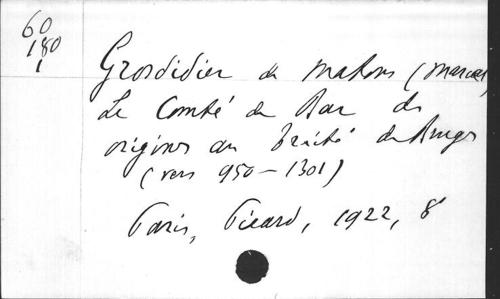 60
180
1
Grosdidier de Matons (Marcel)
Le Comté de Bar des
origines au traité de Bruges
(vers 950-1301)
Paris, Picard, 1922, 8°